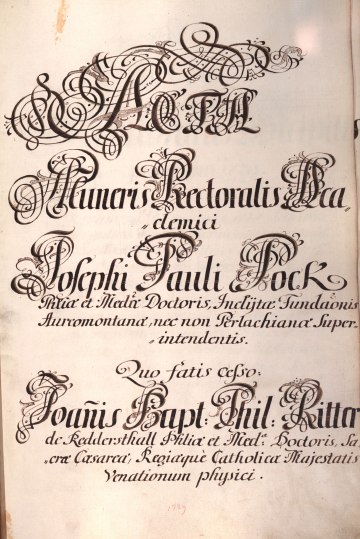 ACTA
Muneris Rectoralis Aca
demici
Josephi Pauli Pock
Philiæ et Medæ Doctoris, Inclÿtæ Fundaõnis
Aureomontanæ, nec non Perlachianæ Super-
intendentis.
Quo fatis cesso:
Joañis Bapt: Phil: Ritter
de Reddersthall Philiæ et Med: Doctoris, Sa
cræ Cæsareæ, Regiæque Catholicæ Majestatis
Venationum physici.